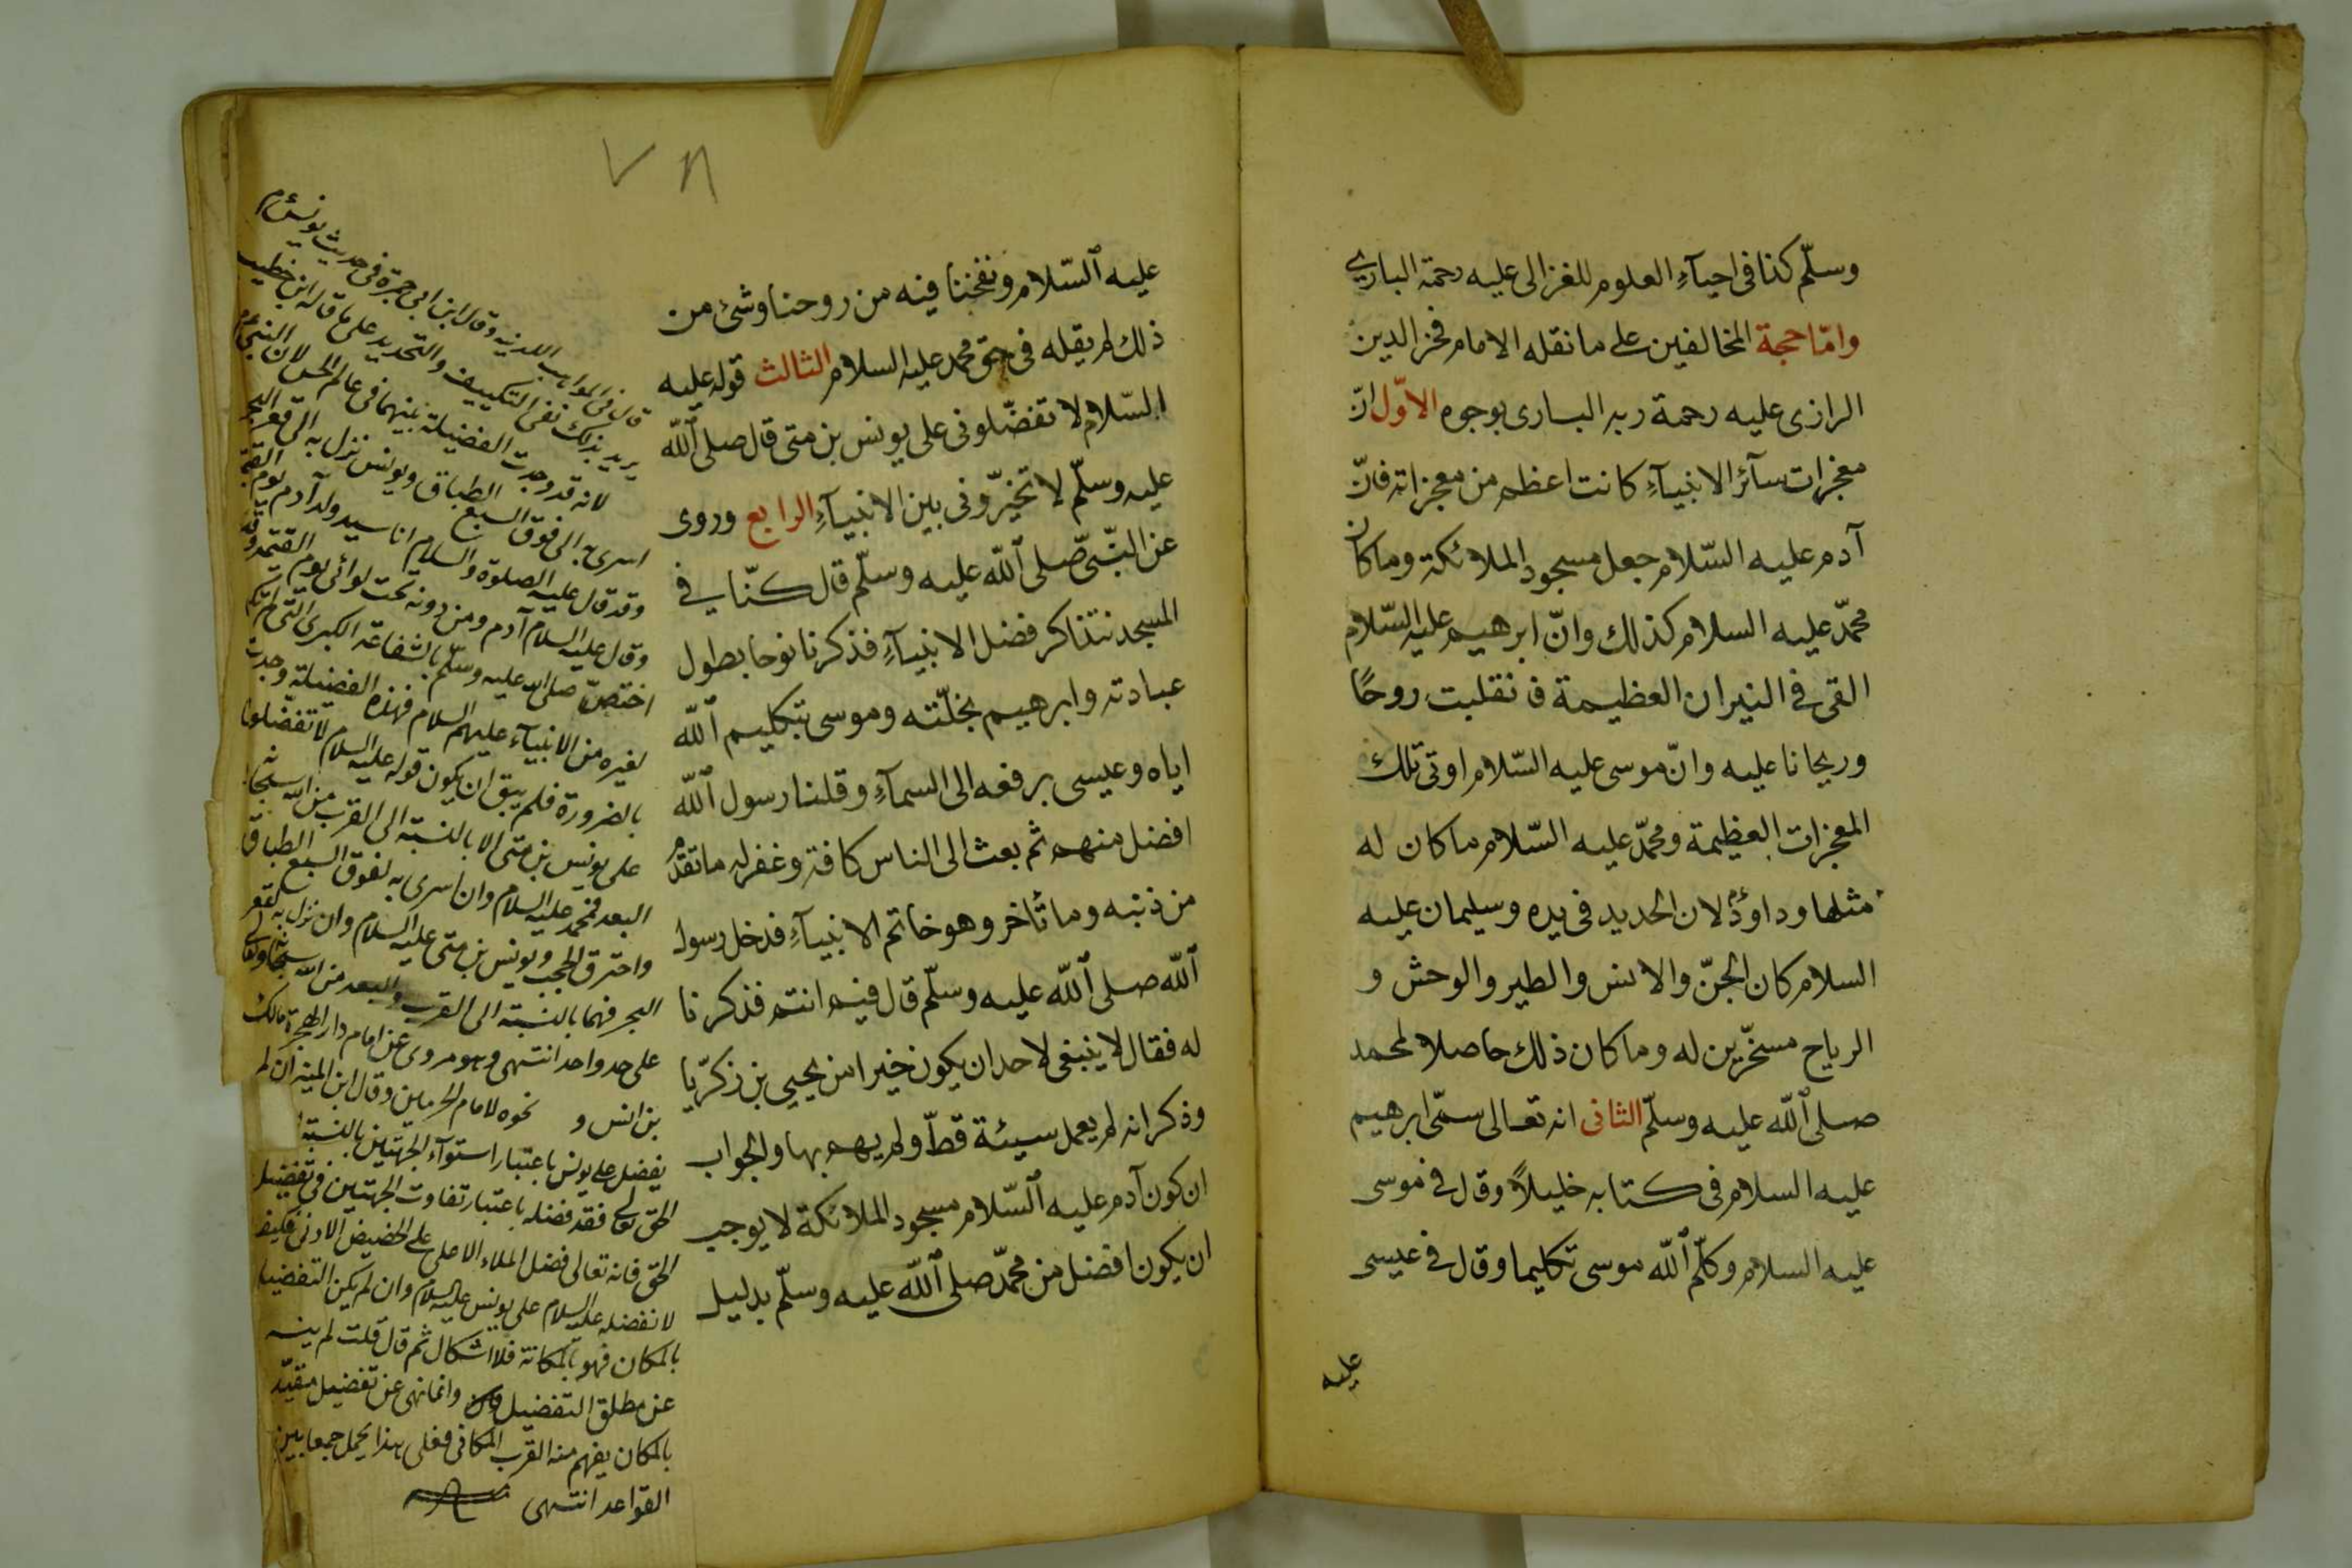 وسلّم كذا فى احيآءِ العلوم للغزالى عليه رحمة البارى
وامّا حجة المخالفين على ما نقله الامام فخر الدين
الرازى عليه رحمة ربه البارى بوجوه الاوّل انّ
معجزات سآئر الانبيآءِ كانت اعظم من معجزاته فانّ
آدم عليه السّلام جعل مسجود الملائكة وما كان
محمّد عليه السلام كذلك وانّ ابرهيم عليه السّلام
القى فى النيران العظيمة فانقلبت روحًا
وريحانا عليه وانّ موسى عليه السّلام اوتى تلك
المعجزات العظيمة ومحمّد عليه السّلام ما كان له
مثلها وداود لان الحديد فى يده وسليمان عليه
السلام كان الجنّ والانس والطير والوحش و
الرياح مسخّرين له وما كان ذلك حاصلا لمحمد
صلى الله عليه وسلّم الثانى انه تعالى سمّى ابرهيم
عليه السلام فى كتابه خليلاً وقال فى موسى
عليه السلام وكلّم الله موسى تكليما وقال فى عيسى
عليه
٧٨
عليه السّلام ونفخنا فيه من روحنا وشئ من
ذلك لم يقله فى حق محمد عليه السلام الثالث قوله عليه
السّلام لا تفضّلونى على يونس بن متى قال صلى الله
عليه وسلّم لا تخيّرونى بين الانبيآءِ الرابع وروى
عن النبّى صلى الله عليه وسلّم قال كنّا فى
المسجد نتذاكر فضل الانبيآءِ فذكرنا نوحا بطول
عبادته وابرهيم بخلّته وموسى بتكليم الله
اياه وعيسى برفعه الى السمآءِ وقلنا رسول الله
افضل منهم ثم بعث الى الناس كافة وغفر له ما تقدّم
من ذنبه وما تأخر وهو خاتم الانبيآءِ فدخل رسول
الله صلى الله عليه وسلّم قال فيم انتم فذكرنا
له فقال لا ينبغى لاحد ان يكون خيرا من يحيى بن زكرّيا
وذكر انه لم يعمل سيئة قطّ ولم يهم بها والجواب
ان كون آدم عليه السّلام مسجود الملائكة لا يوجب
ان يكون افضل من محمّد صلى الله عليه وسلّم بدليل
قال فى المواهب اللدنيه وقال ابن ابى جمرة فى حديث يونس عم
يريد بذلك نفى التكييف والتحديد على ما قاله ابن خطيب
لانه قد وجدت الفضيلة بينهما فى عالم الحس لان النبى عم
اسرى به الى فوق السبع الطباق ويونس نزل به الى قعر البحر
وقد قال عليه الصلوة والسلام انا سيد ولد آدم يوم القيمة
وقال عليه السلام آدم ومن دونه تحت لوائى يوم القيمة وقد
اختصّ صلى الله عليه وسلّم بالشفاعة الكبرى التى لم تكن
لغيره من الانبيآء عليهم السلام فهذه الفضيلة وجدت
بالضرورة فلم يبق ان يكون قوله عليه السلام لا تفضلونى
على يونس بن متى الا بالنسبة الى القرب من الله سبحانه
البعد فمحمد عليه السلام وان اسرى به لفوق السبع الطباق
واخترق الحجب ويونس بن متى عليه السلام وان نزل به لقعر
البحر فهما بالنسبة الى القرب والبعد من الله سبحانه وتعالى
على حد واحد انتهى وهو مروى عن امام دار الهجرة مالك
بن انس و نحوه لامام الحرمين وقال ابن المنير ان لم
يفضل على يونس باعتبار استوآء الجهتين بالنسبة
الحق تعالى فقد فضله باعتبار تفاوت الجهتين فى تفضيل
الحق فانه تعالى فضل الملاء الاعلى على الحضيض الادنى فكيف
لا نفضله عليه السلام على يونس عليه السلام وان لم يكن التفضيل
بالمكان فهو بالمكانة فلا اشكال ثم قال قلت لم ينه
عن مطلق التفضيل وانما نهى عن تفضيل مقيّد
بالمكان يفهم منه القرب المكانى فعلى هذا يحمل جمعا بين
القواعد انتهى